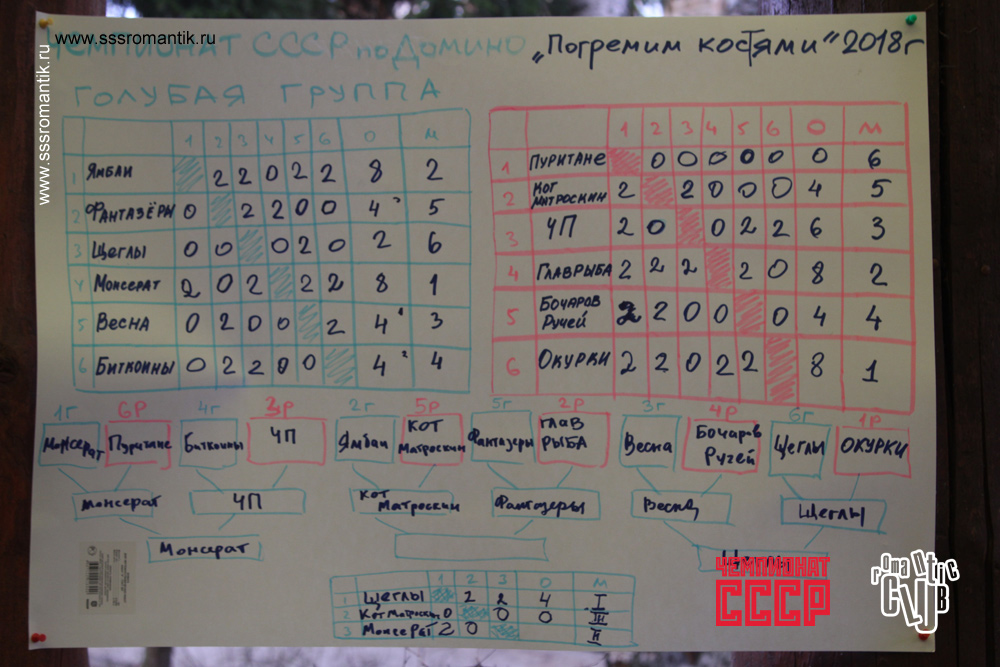 www.sssromantik.ru
www.sssromantik.ru
ЧЕМПИОНАТ СССР по Домино „Погремим костями“ 2018г
ГОЛУБАЯ ГРУППА
1 2 3 4 5 6 О М
1 ЯМБАИ 2 2 0 2 2 8 2
2 ФАНТАЗЁРЫ 0 2 2 0 0 4 5
3 ЩЕГЛЫ 0 0 0 2 0 2 6
4 МОНСЕРАТ 2 0 2 2 2 8 1
5 ВЕСНА 0 2 0 0 2 4 3
6 БИТКОИНЫ 0 2 2 0 0 4 4
1 2 3 4 5 6 О М
1 ПУРИТАНЕ 0 0 0 0 0 0 6
2 КОТ МАТРОСКИН 2 2 0 0 0 4 5
3 ЧП 2 0 0 2 2 6 3
4 ГЛАВРЫБА 2 2 2 2 0 8 2
5 БОЧАРОВ Ручей 2 2 0 0 0 4 4
6 ОКУРКИ 2 2 0 2 2 8 1
1г 6Р 4г 3Р 2г 5Р 5г 2Р 3г 4Р 6г 1Р
Монсерат Пуритане Биткоины ЧП Ямбаи КОТ Матроскин Фантазеры ГЛАВ РЫБА Весна Бочаров Ручей Щеглы ОКУРКИ
Монсерат ЧП Кот Матроскин Фантазеры Весна Щеглы
Монсерат Щеглы
1 2 3 О М
1 ЩЕГЛЫ 2 2 4 I
2 Кот Матроскин 0 0 0 III
3 Монсерат 2 0 II
ЧЕМПИОНАТ
СССР
romantic
CLUB